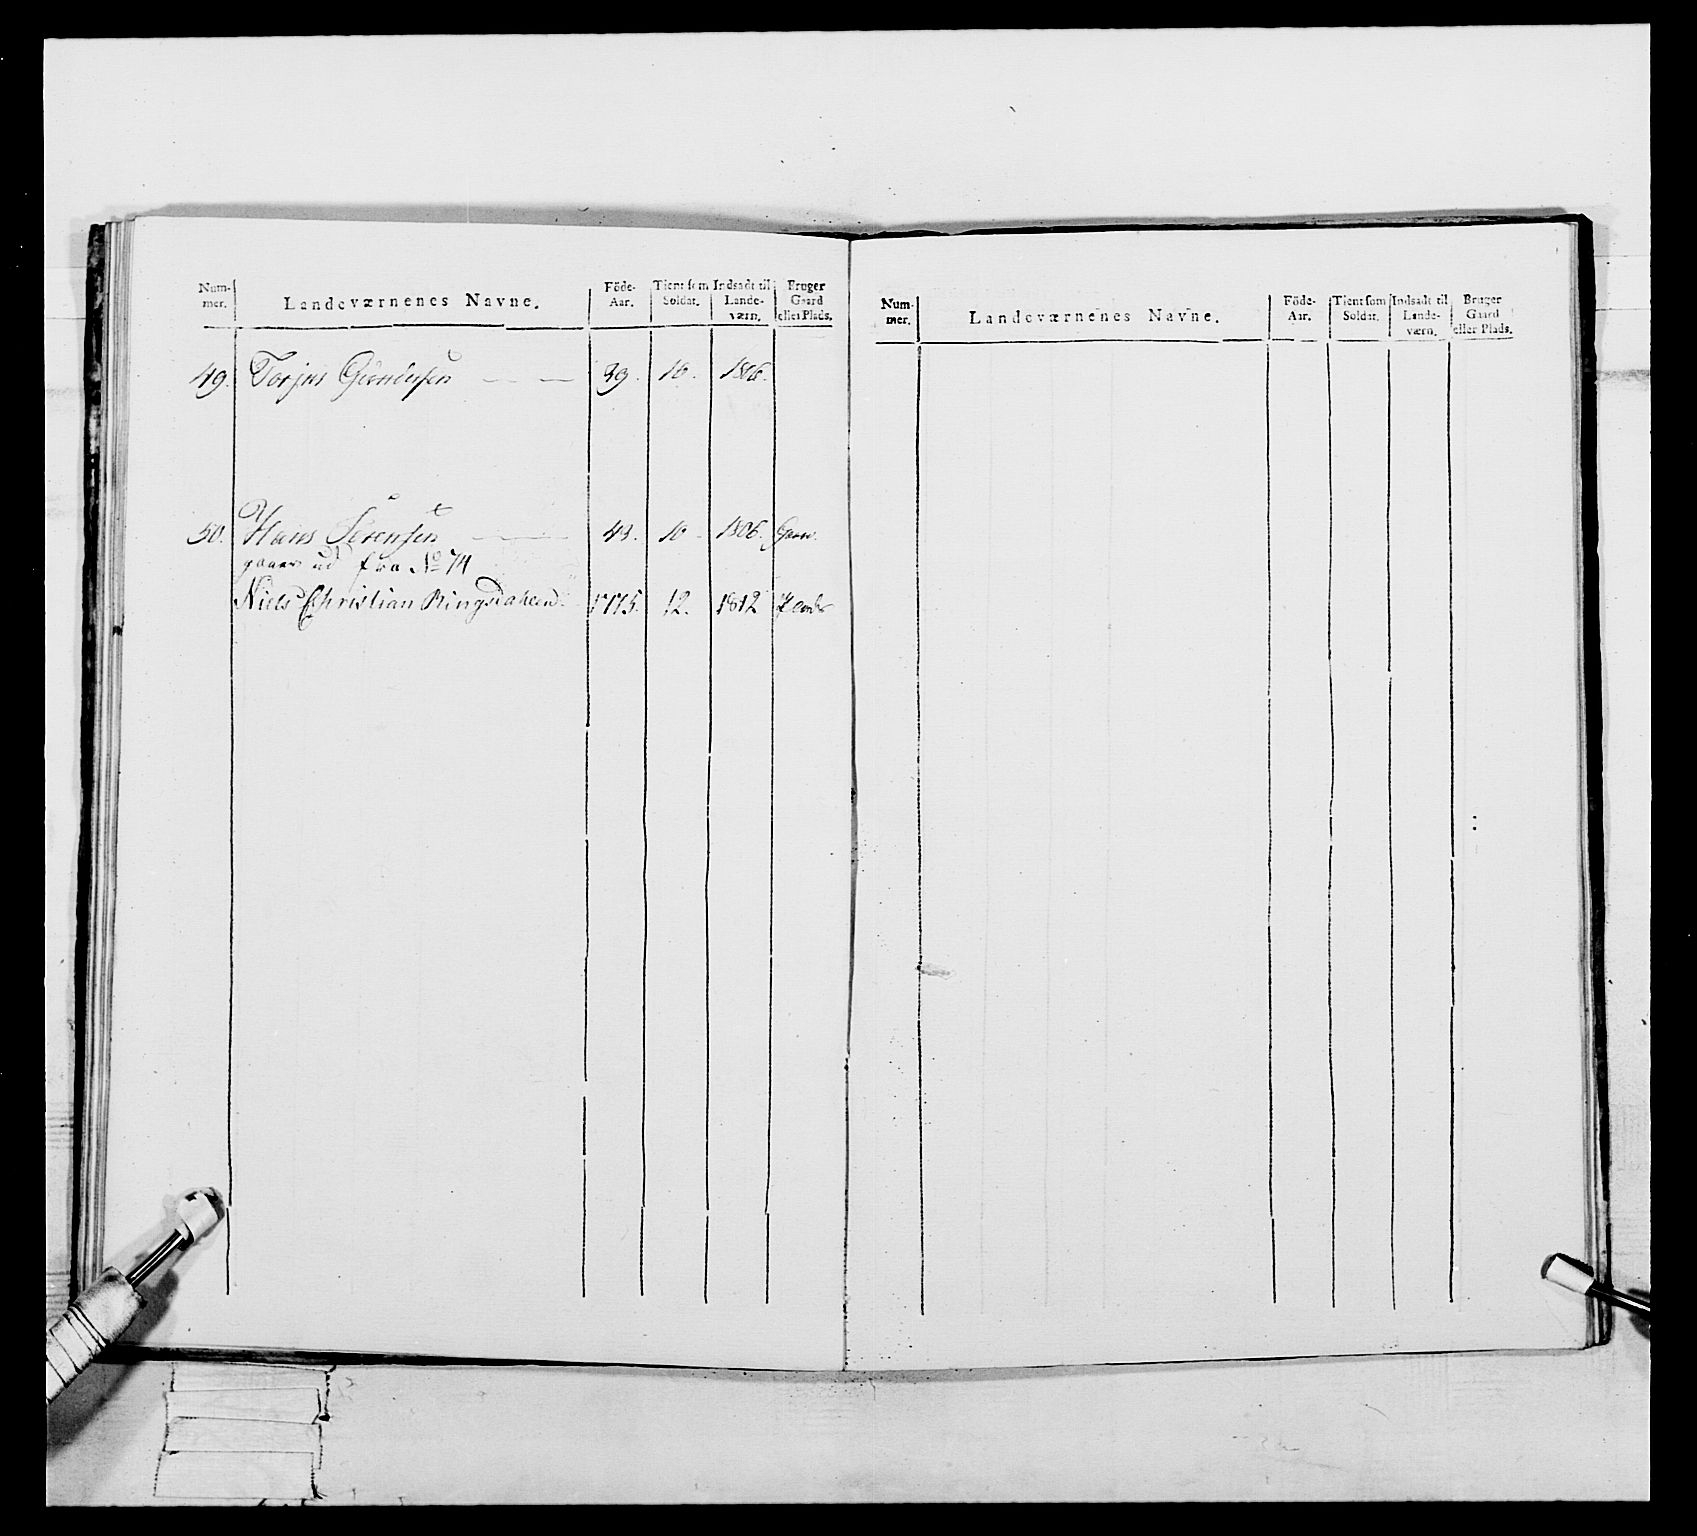 Num-mer. Landeværnenes Navne. Föde-Aar. Tient som Soldat. Indsadt til Lande-værn. Bruger Gaard eller Plads.
49. Torjus Gundersen — — 39. 10. 1806.
50. Hans Sörensen — 43. 10 1806.
gaaer ud fra No 74
Niels Christian Ringsdahlen 1775. 12. 1812
Num-mer. Landeværnenes Navne. Föde-Aar. Tient som Soldat. Indsadt til Lande-værn. Bruger Gaard eller Plads.